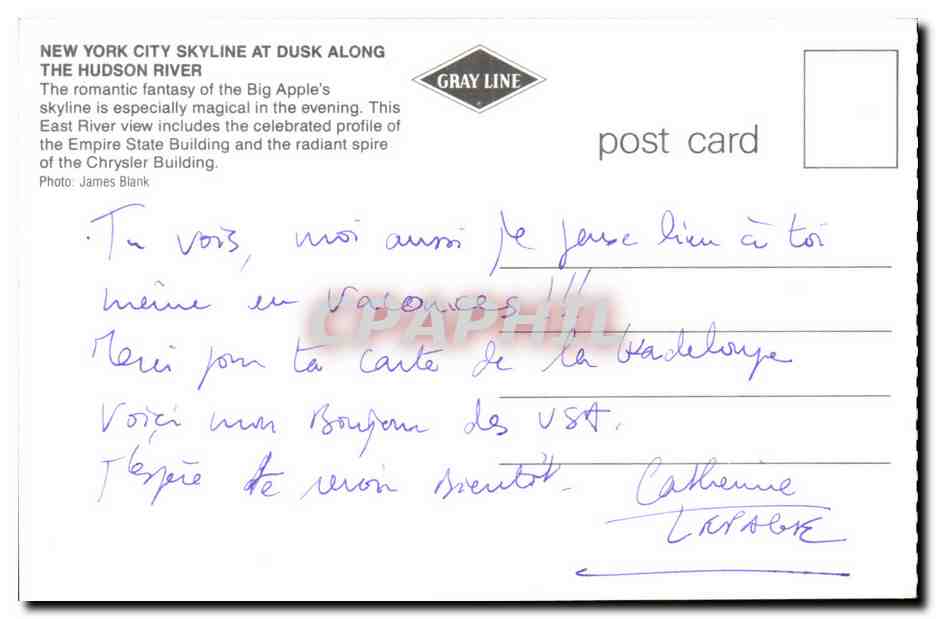 NEW YORK CITY SKYLINE AT DUSK ALONG
THE HUDSON RIVER
The romantic fantasy of the Big Apple's
skyline is especially magical in the evening. This
East River view includes the celebrated profile of
the Empire State Building and the radiant spire
of the Chrysler Building.
Photo: James Blank
GRAY LINE
post card
Tu vois, moi aussi je pense bien à toi
même en vacances !!!
Merci pour ta carte de la Guadeloupe
Voici mon Bonjour des USA.
J'espère te revoir Bientôt.
Catherine
LEPAGE
CPAPHIL